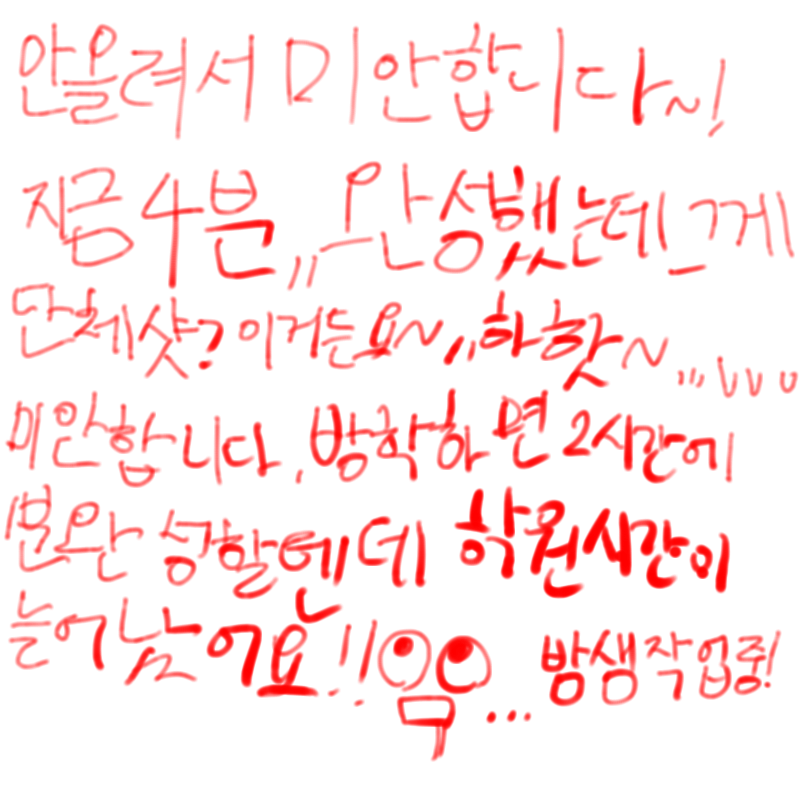 안올려서 미안합니다~!
지금 4분,, 완성했는데 그게
단체샷? 이거든요~,, 하핫~,,,
미안합니다, 방학하면 2시간에
1분 완성할텐데 학원시간이
늘어났어요!! ... 밤샘작업중!